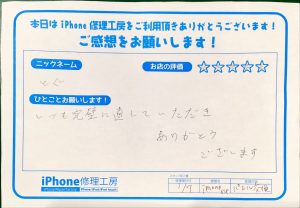 本日は iPhone 修理工房をご利用頂きありがとうございます!
ご感想をお願いします!
ニックネーム
お店の評価 ☆☆☆☆☆
ひとことお願いします!
いつも完璧に直していただき
ありがとう
ございます
iPhone修理工房